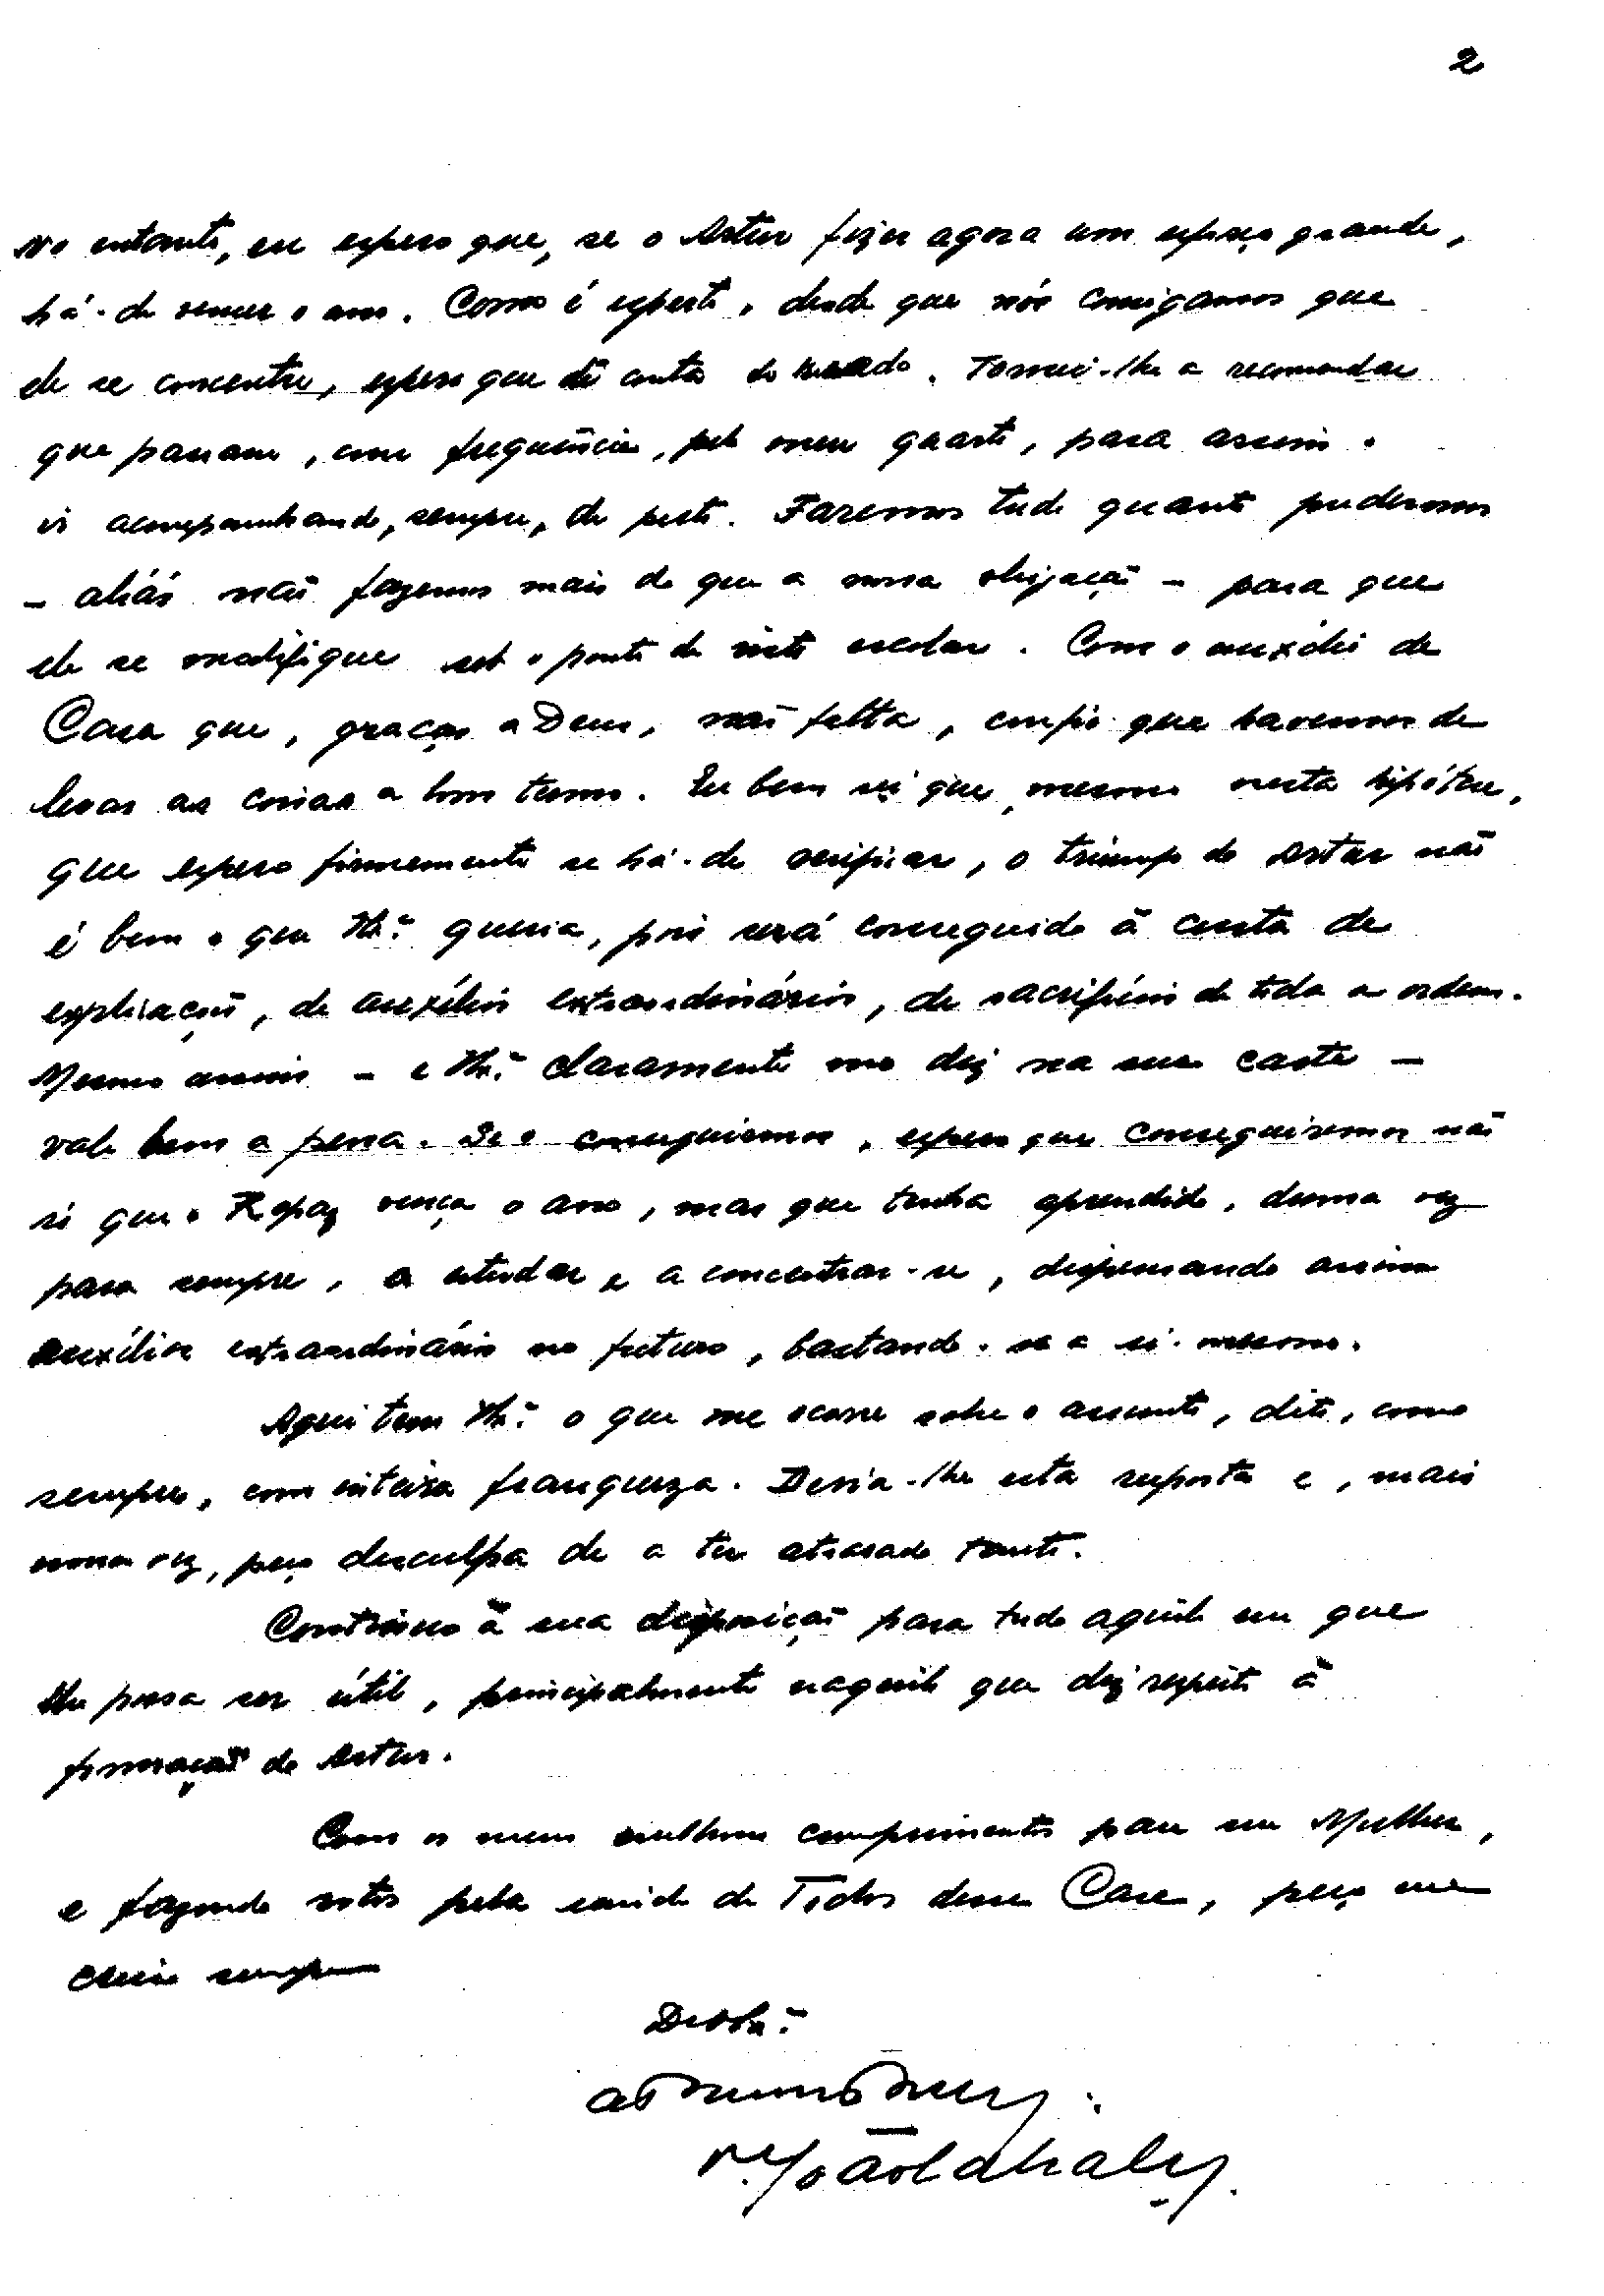 2
No entanto, eu espero que, se o Artur fizer agora um esforço grande,
há-de vencer o ano. Como é esperto, desde que nós consigamos que
ele se concentre, espero que dê conta do recado. Tornei-lhe a recomendar
que passasse, com frequência, pelo meu quarto, para assim o
ir acompanhando, sempre, de perto. Faremos tudo quanto pudermos
- aliás não fazemos mais do que a nossa obrigação - para que
ele se modifique sob o ponto de vista escolar. Com o auxílio de
Casa que, graças a Deus, não falta, confio que havemos de
levar as coisas a bom termo. Eu bem sei que, mesmo nesta hipótese,
que espero firmemente se há-de verificar, o triunfo do Artur não
é bem o que queria, pois será conseguido à custa de
explicações, de auxílios extraordinários, de sacrifícios de toda a ordem.
Mesmo assim - e claramente mo diz na sua carta -
vale bem a pena. Se o conseguirmos, espero que conseguiremos não
só que o Rapaz vença o ano, mas que tenha aprendido, duma vez
para sempre, a estudar e a concentrar-se, dispensando assim
auxílios extraordinários no futuro, bastando-se a si mesmo.
Aqui tem o que me ocorre sobre o assunto, dito, como
sempre, com inteira franqueza. Devia-lhe esta resposta e, mais
uma vez, peço desculpa de a ter atrasado tanto.
Continuo à sua disposição para tudo aquilo em que
lhe possa ser útil, principalmente naquilo que diz respeito à
formação do Artur.
Com os meus melhores cumprimentos para sua Mulher,
e fazendo votos pela saúde de Todos dessa Casa, peço me
creia sempre